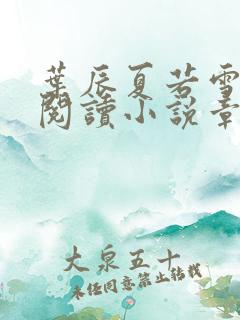 葉辰夏若雪
閱讀小說章
大泉五十
未經同意禁止轉載